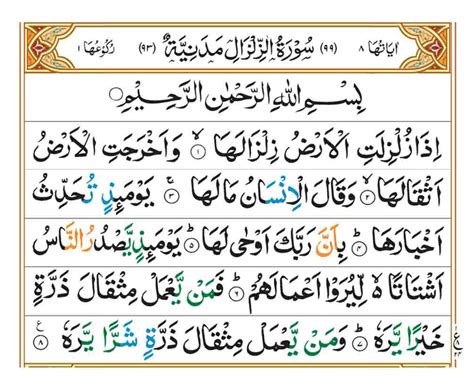 اٰیَاتُهَا ۸ (۹۹) سُوْرَةُ الزِّلْزَالِ مَدَنِیَّةٌ (۹۳) رُكُوْعُهَا ۱
بِسْمِ اللّٰهِ الرَّحْمٰنِ الرَّحِیْمِ
اِذَا زُلْزِلَتِ الْاَرْضُ زِلْزَالَهَا ۙ﴿۱﴾ وَ اَخْرَجَتِ الْاَرْضُ
اَثْقَالَهَا ۙ﴿۲﴾ وَ قَالَ الْاِنْسَانُ مَا لَهَا ۚ﴿۳﴾ یَوْمَىِٕذٍ تُحَدِّثُ
اَخْبَارَهَا ؕ﴿۴﴾ بِاَنَّ رَبَّكَ اَوْحٰى لَهَا ؕ﴿۵﴾ یَوْمَىِٕذٍ یَّصْدُرُ النَّاسُ
اَشْتَاتًا ۬ۙ لِّیُرَوْا اَعْمَالَهُمْ ؕ﴿۶﴾ فَمَنْ یَّعْمَلْ مِثْقَالَ ذَرَّةٍ
خَیْرًا یَّرَهٗ ؕ﴿۷﴾ وَ مَنْ یَّعْمَلْ مِثْقَالَ ذَرَّةٍ شَرًّا یَّرَهٗ ﴿۸﴾